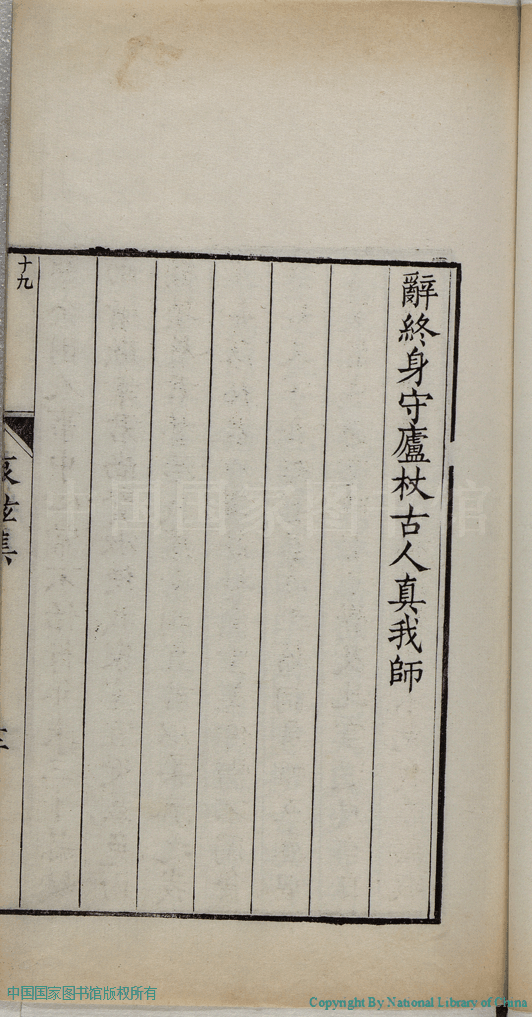 辭終身守廬杖古人真我師
十九
哀弦集
中国国家图书馆
中国国家图书馆版权所有
Copyright By National Library of China